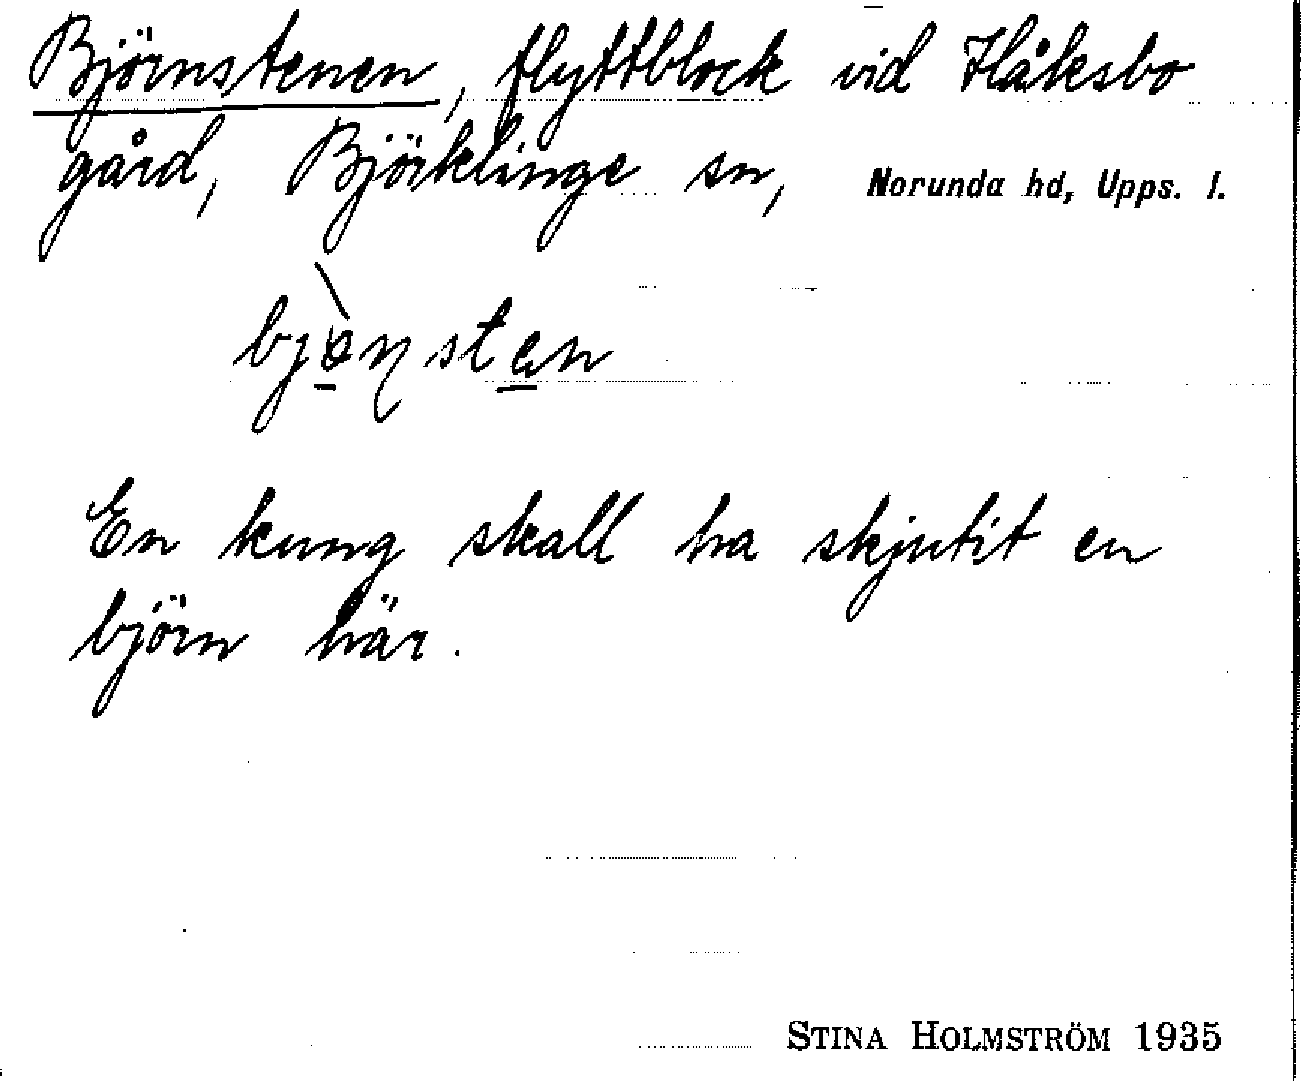 Björnstenen, flyttblock vid Håksbo
gård, Björklinge sn, Norunda hd, Upps. l.
En kung skall ha skjutit en
björn här.
STINA HOLMSTRÖM 1935